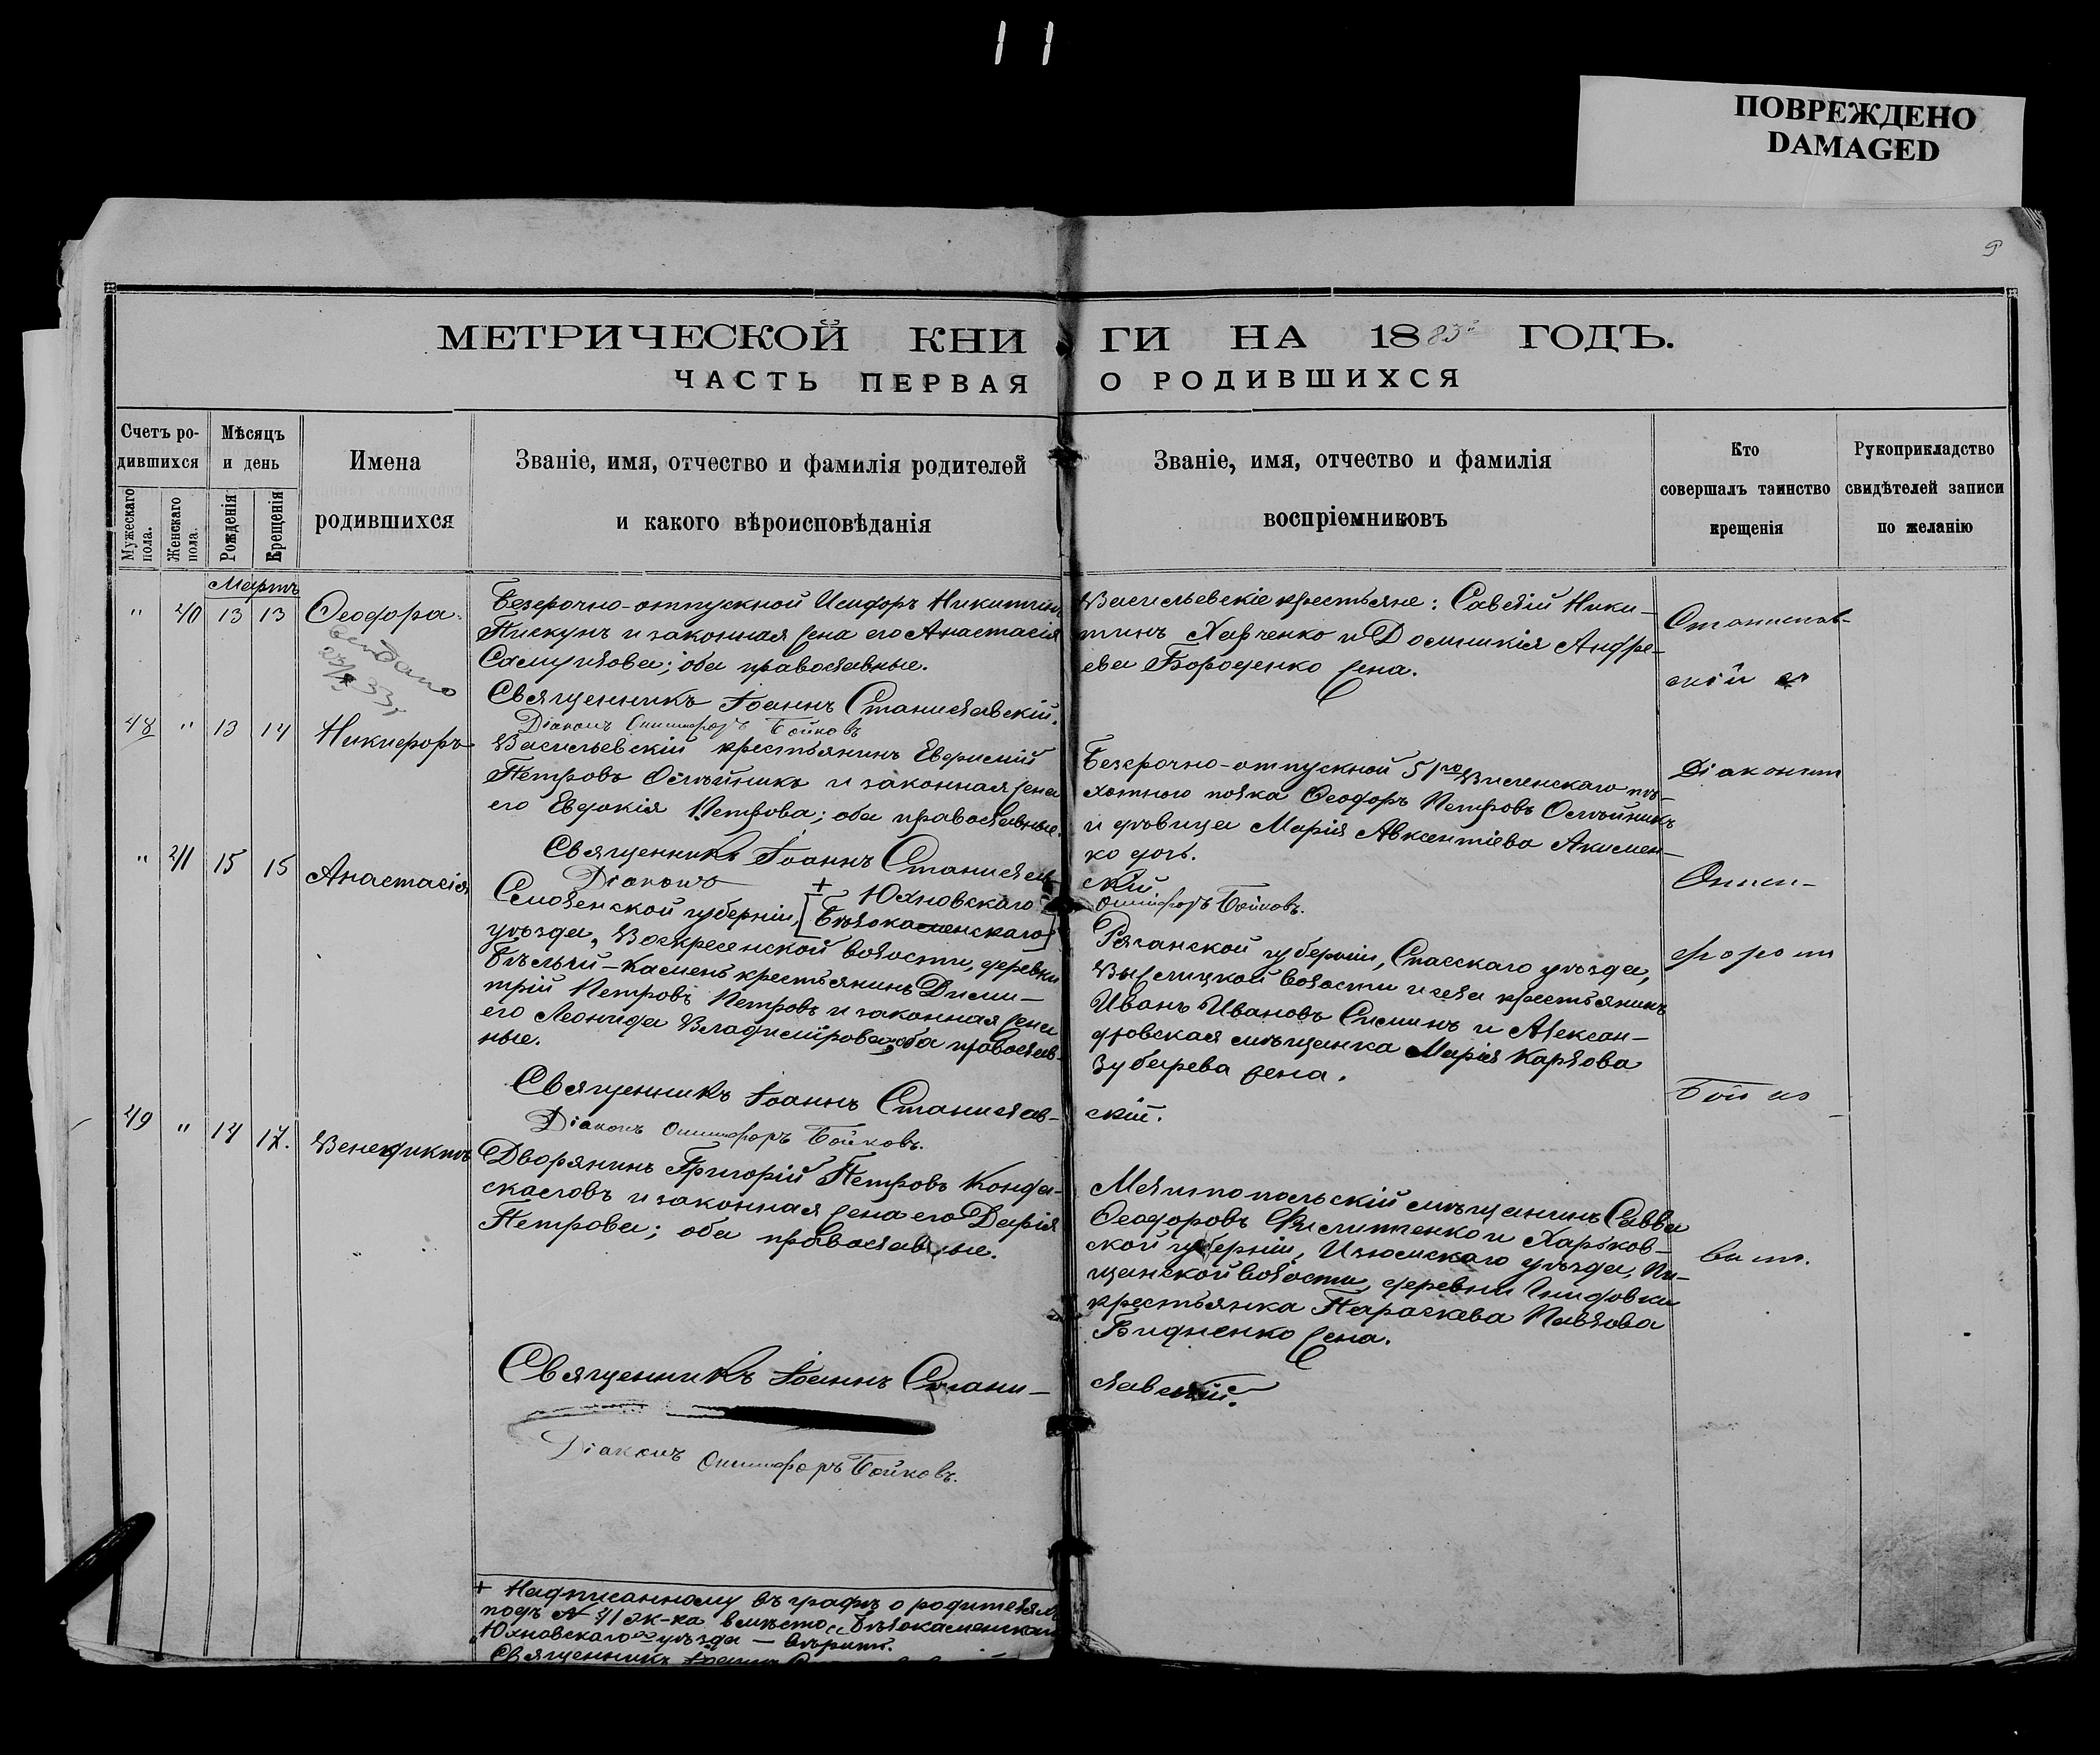 11
ПОВРЕЖДЕНО
DAMAGED
9
МЕТРИЧЕСКОЙ КНИГИ НА 1883 ГОДЪ.
ЧАСТЬ ПЕРВАЯ О РОДИВШИХСЯ
Счетъ родившихся
Мужескаго пола.
Женскаго пола.
Мѣсяцъ и день
Рожденія
Крещенія
Имена
родившихся
Званіе, имя, отчество и фамилія родителей
и какого вѣроисповѣданія
Званіе, имя, отчество и фамилія
воспріемниковъ
Кто
совершалъ таинство
крещенія
Рукоприкладство
свидѣтелей записи
по желанію
Мартъ
" 40 13 13 Ѳеодора.
выдано
Безсрочно-отпускной Исидоръ Никитинъ
Пискунъ и законная жена его Анастасія
Самуилова; оба православные.
Священникъ Іоаннъ Станиславскій.
Діаконъ Онисифоръ Бойковъ
Васильевскіе крестьяне: Савелій Ники-
тинъ Харченко и Домникія Андре-
ева Бороденко жена.
48 " 13 14 Никифоръ
Васильевскій крестьянинъ Евфимій
Петровъ Олѣйникъ и законная жена
его Евдокія Петрова; оба православные.
Священникъ Іоаннъ Станислав-
скій
Діаконъ Онисифоръ Бойковъ.
Безсрочно-отпускной 51го Виленскаго пѣ-
хотного полка Ѳеодоръ Петровъ Олѣйникъ
и дѣвица Марія Авксентіева Акимен-
ко дочь.
" 41 15 15 Анастасія
+ Юхновскаго
Смоленской губерніи, [Бѣлокаменскаго]
уѣзда, Воскресенской волости, деревни
Бѣлый-Камень крестьянинъ Дими-
трій Петровъ Петровъ и законная жена
его Леонида Владимірова; оба православ-
ные.
Священникъ Іоаннъ Станислав-
скій.
Діаконъ Онисифоръ Бойковъ.
Рязанской губерніи, Спасскаго уѣзда,
волости и села крестьянинъ
Иванъ Ивановъ Симинъ и Алексан-
дровская мѣщанка Марія Карлова
Зубарева жена.
49 " 14 17. Венедиктъ
Дворянинъ Григорій Петровъ Конда-
скаловъ и законная жена его Дарія
Петрова; оба православные.
Мелитопольскій мѣщанинъ Савва
Ѳеодоровъ Филипченко и Харьков-
ской губерніи, Изюмскаго уѣзда,
волости, деревни
крестьянка Параскева Павлова
Бидненко жена.
Священникъ Іоаннъ Стани-
славскій.
Діаконъ Онисифоръ Бойковъ.
Станислав-
скій съ
Діакономъ
Ониси-
форомъ
Бойко-
вымъ.
+ Надписанному въ графѣ о родителяхъ
подъ № 41 ж-ка вмѣсто „Бѣлокаменскаго
„Юхновскаго" уѣзда — вѣрить.
Священникъ Іоаннъ